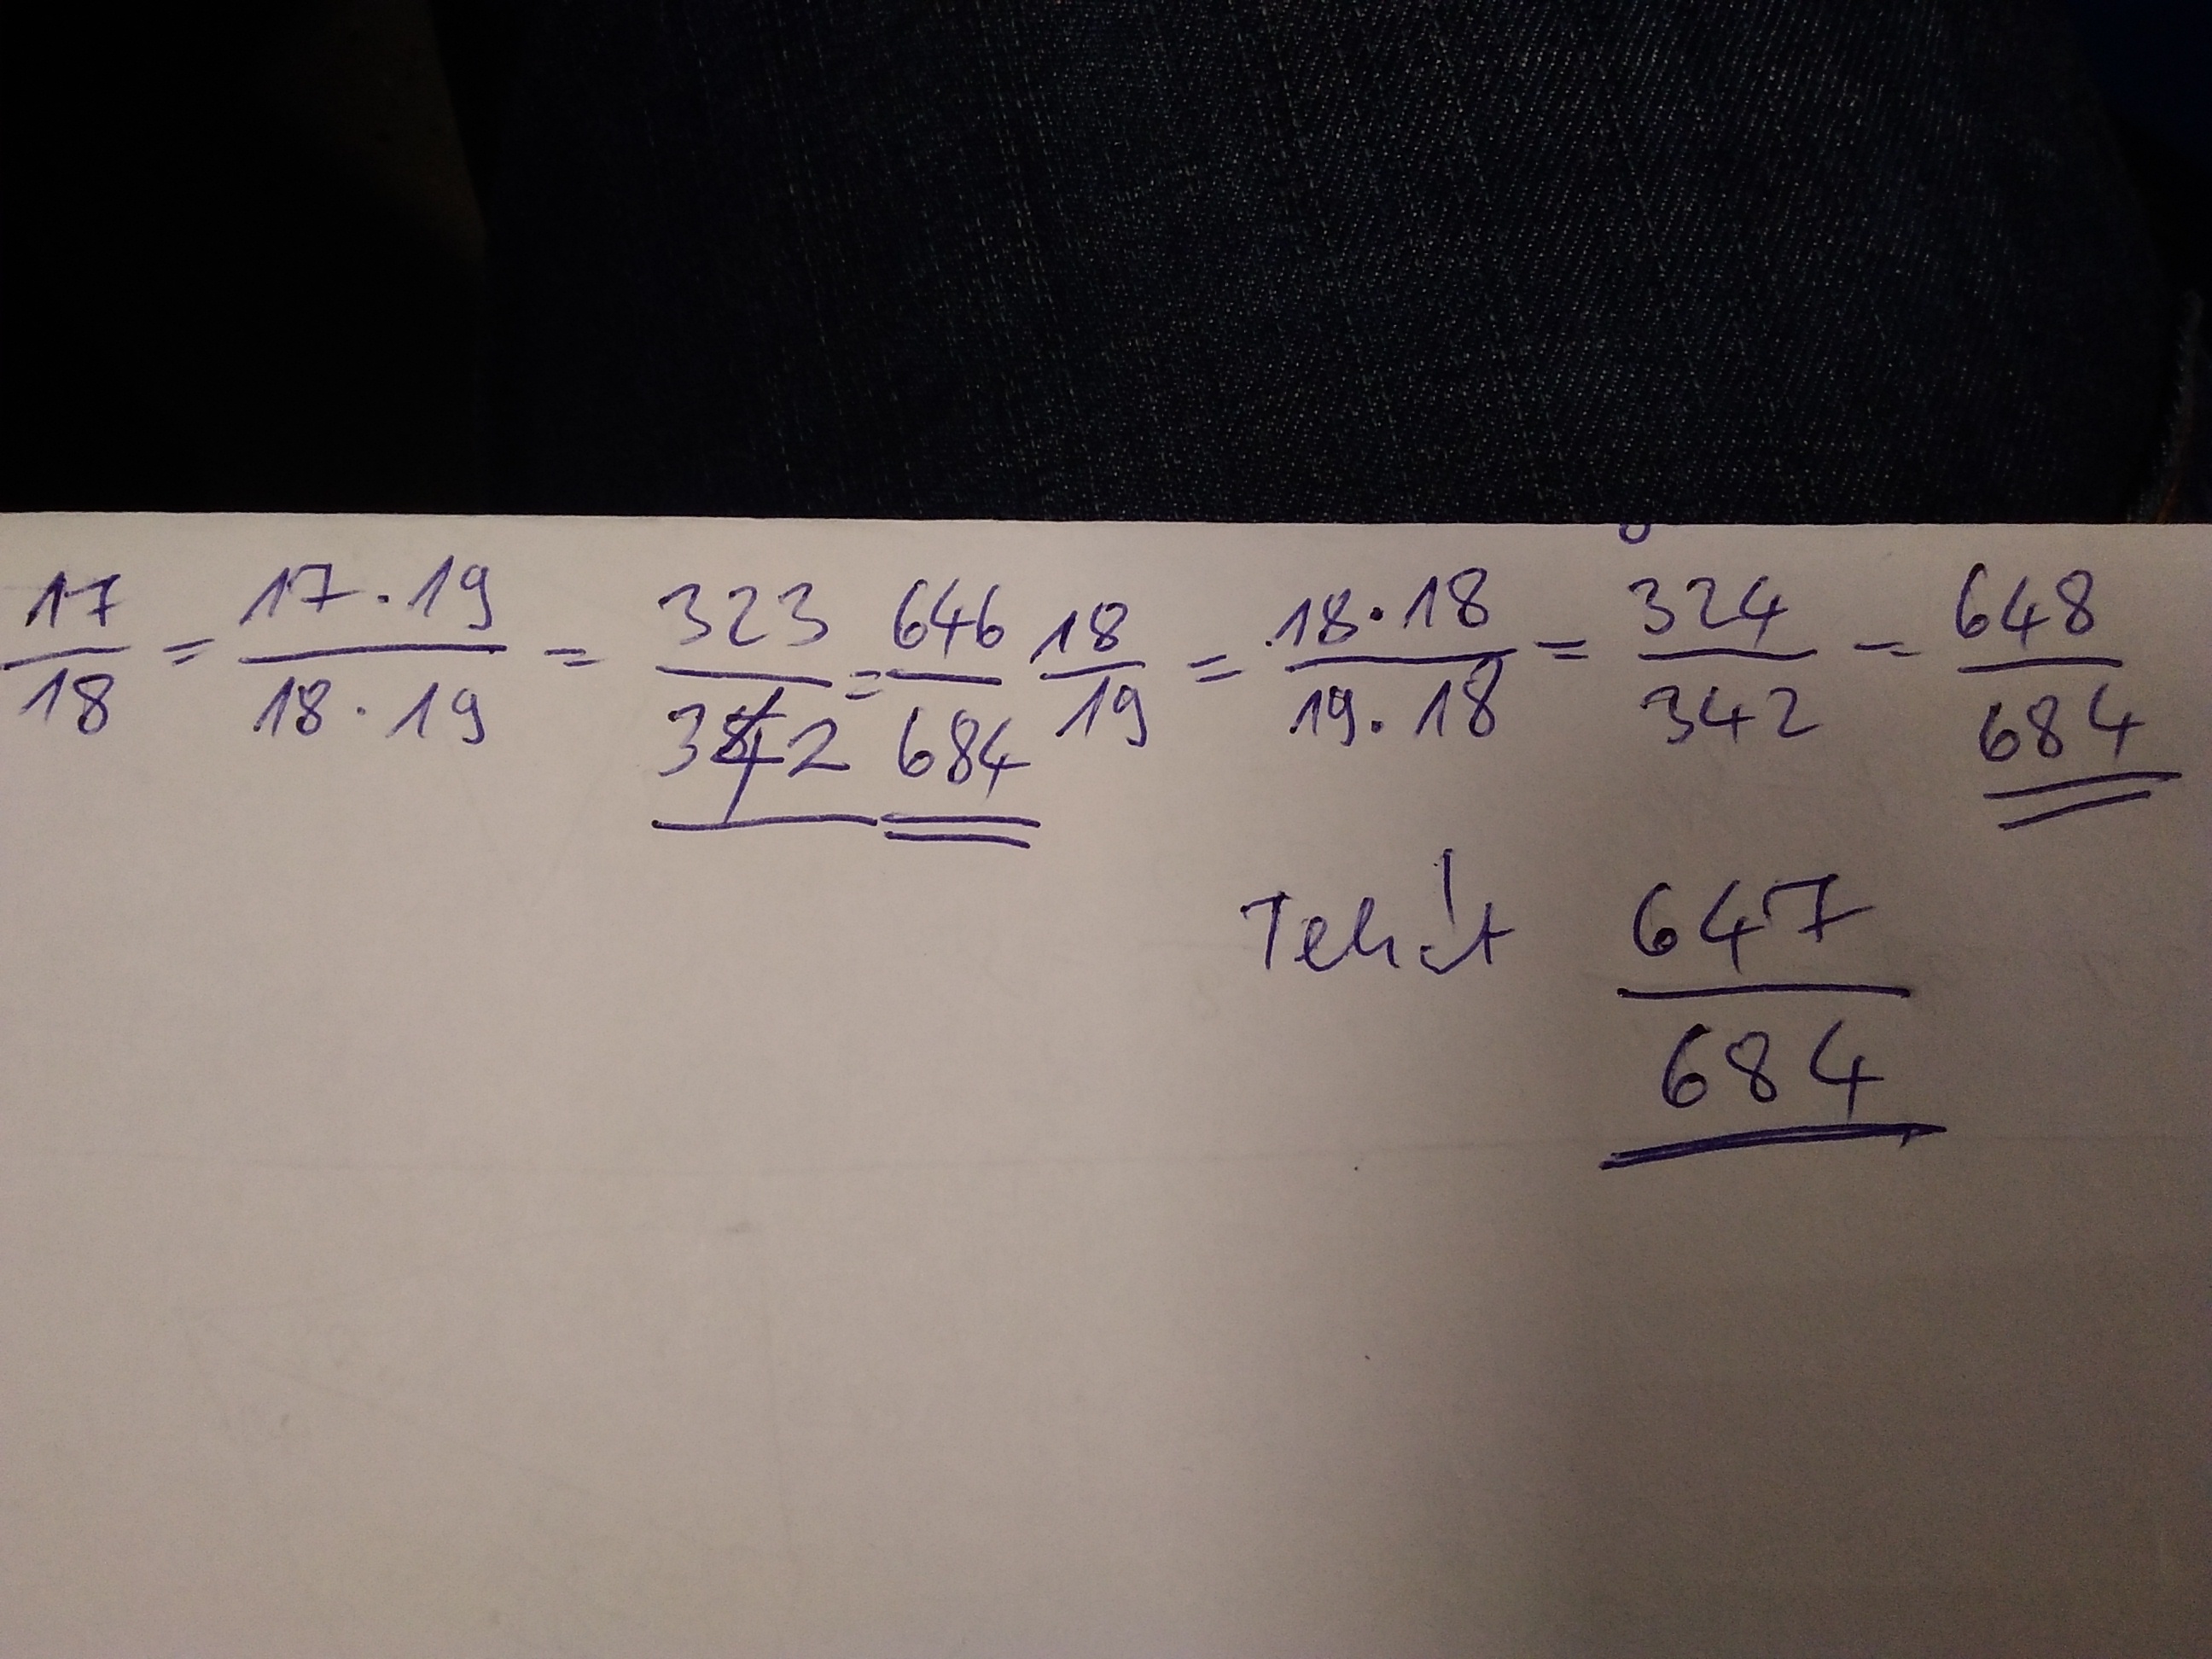 17/18 = 17·19/18·19 = 323/342 = 646/684 18/19 = 18·18/19·18 = 324/342 = 648/684
Tehát 647/684